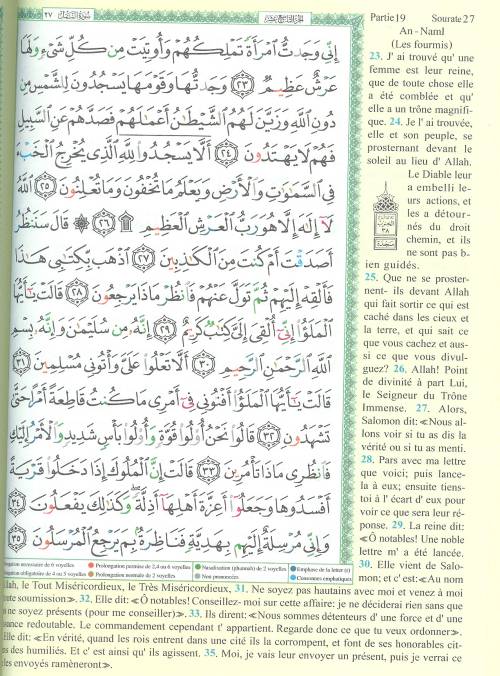 ٢٧ سُورَةُ النَّمْلِ
الجُزْءُ التَّاسِعَ عَشَرَ
إِنِّى وَجَدتُّ ٱمْرَأَةً تَمْلِكُهُمْ وَأُوتِيَتْ مِن كُلِّ شَىْءٍ وَلَهَا
عَرْشٌ عَظِيمٌ ٢٣ وَجَدتُّهَا وَقَوْمَهَا يَسْجُدُونَ لِلشَّمْسِ مِن
دُونِ ٱللَّهِ وَزَيَّنَ لَهُمُ ٱلشَّيْطَٰنُ أَعْمَٰلَهُمْ فَصَدَّهُمْ عَنِ ٱلسَّبِيلِ
فَهُمْ لَا يَهْتَدُونَ ٢٤ أَلَّا يَسْجُدُوا۟ لِلَّهِ ٱلَّذِى يُخْرِجُ ٱلْخَبْءَ
فِى ٱلسَّمَٰوَٰتِ وَٱلْأَرْضِ وَيَعْلَمُ مَا تُخْفُونَ وَمَا تُعْلِنُونَ ٢٥
ٱللَّهُ لَآ إِلَٰهَ إِلَّا هُوَ رَبُّ ٱلْعَرْشِ ٱلْعَظِيمِ ۩ ٢٦ ۞ قَالَ سَنَنظُرُ
أَصَدَقْتَ أَمْ كُنتَ مِنَ ٱلْكَٰذِبِينَ ٢٧ ٱذْهَب بِّكِتَٰبِى هَٰذَا
فَأَلْقِهْ إِلَيْهِمْ ثُمَّ تَوَلَّ عَنْهُمْ فَٱنظُرْ مَاذَا يَرْجِعُونَ ٢٨ قَالَتْ يَٰٓأَيُّهَا
ٱلْمَلَؤُا۟ إِنِّىٓ أُلْقِىَ إِلَىَّ كِتَٰبٌ كَرِيمٌ ٢٩ إِنَّهُۥ مِن سُلَيْمَٰنَ وَإِنَّهُۥ بِسْمِ
ٱللَّهِ ٱلرَّحْمَٰنِ ٱلرَّحِيمِ ٣٠ أَلَّا تَعْلُوا۟ عَلَىَّ وَأْتُونِى مُسْلِمِينَ ٣١
قَالَتْ يَٰٓأَيُّهَا ٱلْمَلَؤُا۟ أَفْتُونِى فِىٓ أَمْرِى مَا كُنتُ قَاطِعَةً أَمْرًا حَتَّىٰ
تَشْهَدُونِ ٣٢ قَالُوا۟ نَحْنُ أُو۟لُوا۟ قُوَّةٍ وَأُو۟لُوا۟ بَأْسٍ شَدِيدٍ وَٱلْأَمْرُ إِلَيْكِ
فَٱنظُرِى مَاذَا تَأْمُرِينَ ٣٣ قَالَتْ إِنَّ ٱلْمُلُوكَ إِذَا دَخَلُوا۟ قَرْيَةً
أَفْسَدُوهَا وَجَعَلُوٓا۟ أَعِزَّةَ أَهْلِهَآ أَذِلَّةً وَكَذَٰلِكَ يَفْعَلُونَ ٣٤
وَإِنِّى مُرْسِلَةٌ إِلَيْهِم بِهَدِيَّةٍ فَنَاظِرَةٌۢ بِمَ يَرْجِعُ ٱلْمُرْسَلُونَ ٣٥
Partie19 Sourate27
An - Naml
(Les fourmis)
23. J' ai trouvé qu' une
femme est leur reine,
que de toute chose elle
a été comblée et qu'
elle a un trône magnifi-
que. 24. Je l' ai trouvée,
elle et son peuple, se
prosternant devant le
soleil au lieu d' Allah.
Le Diable leur
a embelli le-
urs actions, et
les a détour-
nés du droit
chemin, et ils
ne sont pas b-
ien guidés.
25. Que ne se proster-
nent- ils devant Allah
qui fait sortir ce qui est
caché dans les cieux et
la terre, et qui sait ce
que vous cachez et aus-
si ce que vous divul-
guez? 26. Allah! Point
de divinité à part Lui,
le Seigneur du Trône
Immense. 27. Alors,
Salomon dit: ≪Nous al-
lons voir si tu as dis la
vérité ou si tu as menti.
28. Pars avec ma lettre
que voici; puis lance-
la à eux; ensuite tiens-
toi à l' écart d' eux pour
voir ce que sera leur ré-
ponse. 29. La reine dit:
≪Ô notables! Une noble
lettre m' a été lancée.
30. Elle vient de Salo-
mon; et c' est:≪Au nom
Prolongation permise de 2,4 ou 6 voyelles Nasalisation (ghunnah) de 2 voyelles Emphase de la lettre (r)
Prolongation normale de 2 voyelles Non prononcées Consonnes emphatiques
le Tout Miséricordieux, le Très Miséricordieux, 31. Ne soyez pas hautains avec moi et venez à moi
soumission≫. 32. Elle dit: ≪Ô notables! Conseillez- moi sur cette affaire: je ne déciderai rien sans que
ne soyez présents (pour me conseiller)≫. 33. Ils dirent: ≪Nous sommes détenteurs d' une force et d' une
redoutable. Le commandement cependant t' appartient. Regarde donc ce que tu veux ordonner≫.
Elle dit: ≪En vérité, quand les rois entrent dans une cité ils la corrompent, et font de ses honorables cit-
des humiliés. Et c' est ainsi qu' ils agissent. 35. Moi, je vais leur envoyer un présent, puis je verrai ce
envoyés ramèneront≫.